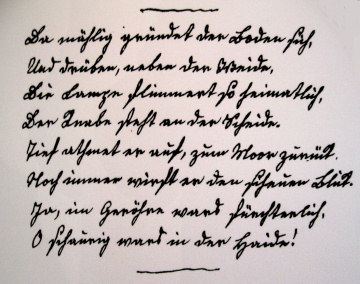 Da mählig gründet der Boden sich,
Und drüben, neben der Weide,
Die Lampe flimmert so heimatlich,
Der Knabe steht an der Scheide.
Tief athmet er auf, zum Moor zurück
Noch immer wirft er den scheuen Blick:
Ja, im Geröhre wars fürchterlich,
O schaurig wars in der Haide!